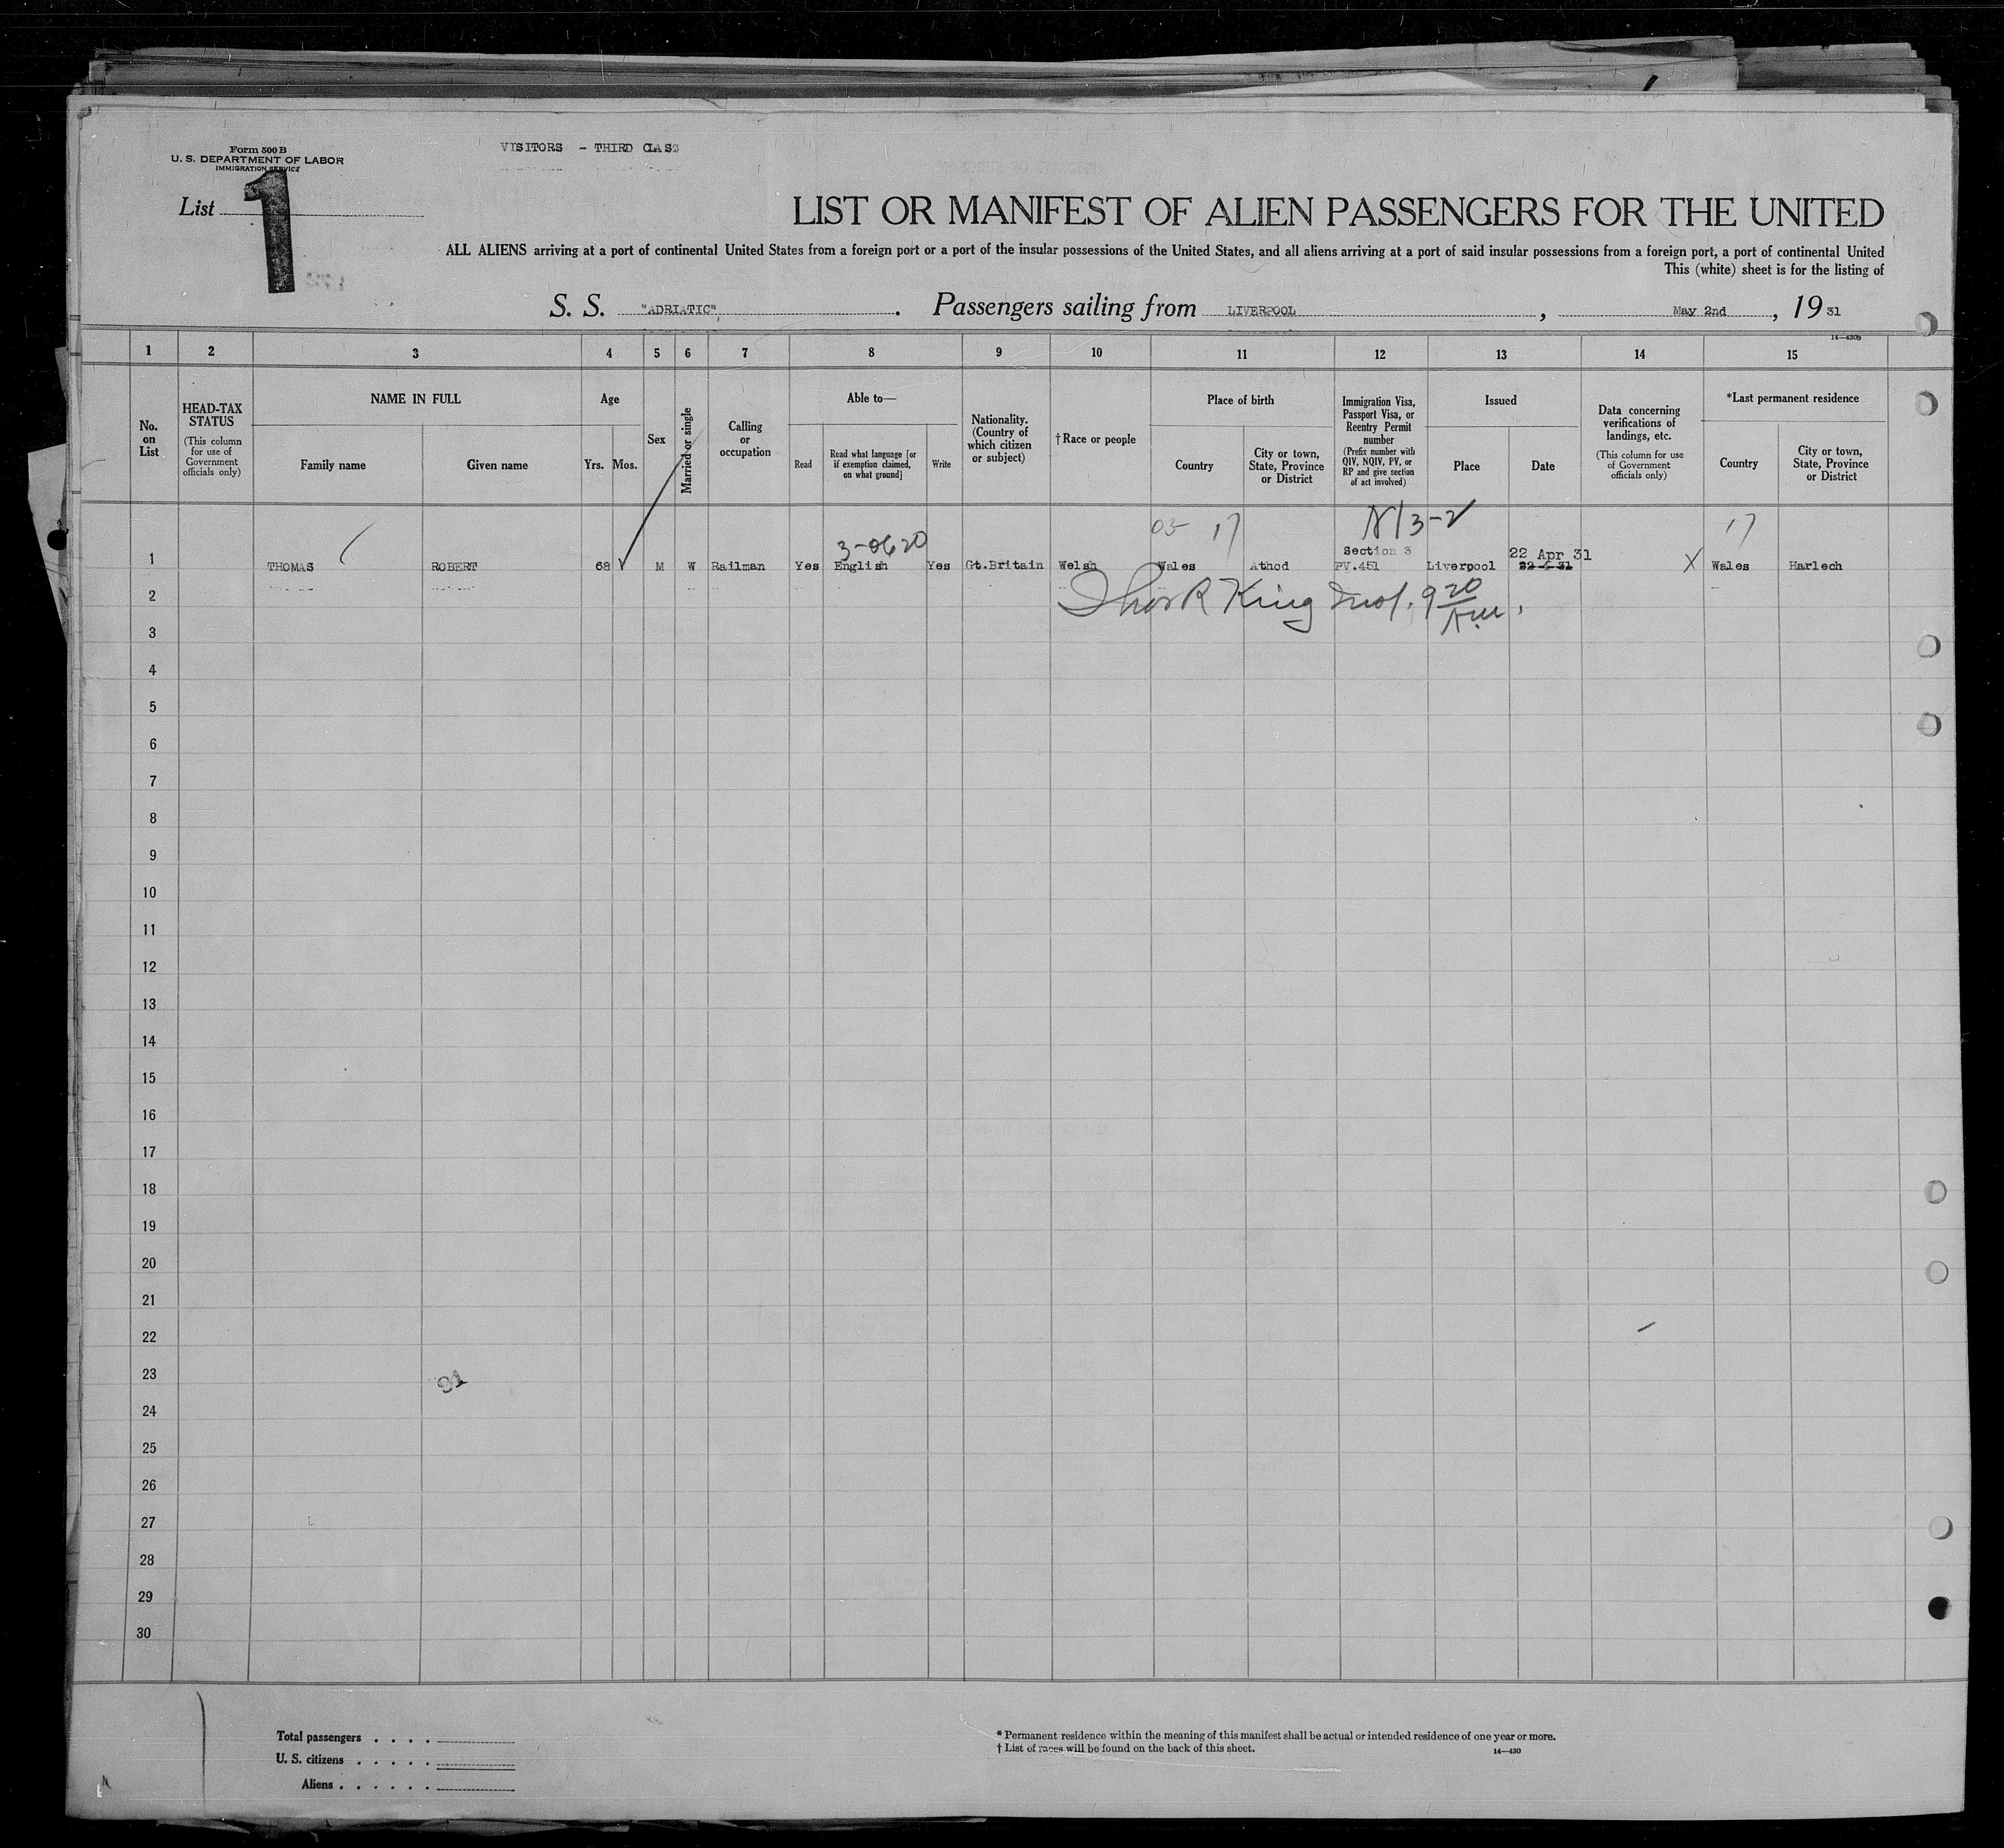 Form 500 B
U. S. DEPARTMENT OF LABOR
IMMIGRATION SERVICE
VISITORS - THIRD CLASS
List 1
LIST OR MANIFEST OF ALIEN PASSENGERS FOR THE UNITED
ALL ALIENS arriving at a port of continental United States from a foreign port or a port of the insular possessions of the United States, and all aliens arriving at a port of said insular possessions from a foreign port, a port of continental United
This (white) sheet is for the listing of
S. S. "ADRIATIC", Passengers sailing from LIVERPOOL, May 2nd, 19 31
14—430b
1 2 3 4 5 6 7 8 9 10 11 12 13 14 15
No. on List
HEAD-TAX STATUS
(This column for use of Government officials only)
NAME IN FULL
Family name
Given name
Age
Yrs. Mos.
Sex
Married or single
Calling or occupation
Able to—
Read
Read what language [or if exemption claimed, on what ground]
Write
Nationality. (Country of which citizen or subject)
†Race or people
Place of birth
Country
City or town, State, Province or District
Immigration Visa, Passport Visa, or Reentry Permit number
(Prefix number with QIV, NQIV, PV, or RP and give section of act involved)
Issued
Place
Date
Data concerning verifications of landings, etc.
(This column for use of Government officials only)
*Last permanent residence
Country
City or town, State, Province or District
3-0620 05 17 3-2 17
Section 3 22 Apr 31
1 THOMAS ROBERT 68 M W Railman Yes English Yes Gt.Britain Welsh Wales Athod PV.451 Liverpool 22 4 31 X Wales Harlech
2 King Insp. 9 20
3
4
5
6
7
8
9
10
11
12
13
14
15
16
17
18
19
20
21
22
23
91
24
25
26
27
28
29
30
Total passengers . . . .
U. S. citizens . . . . .
Aliens . . . . . .
* Permanent residence within the meaning of this manifest shall be actual or intended residence of one year or more.
† List of races will be found on the back of this sheet.
14—430